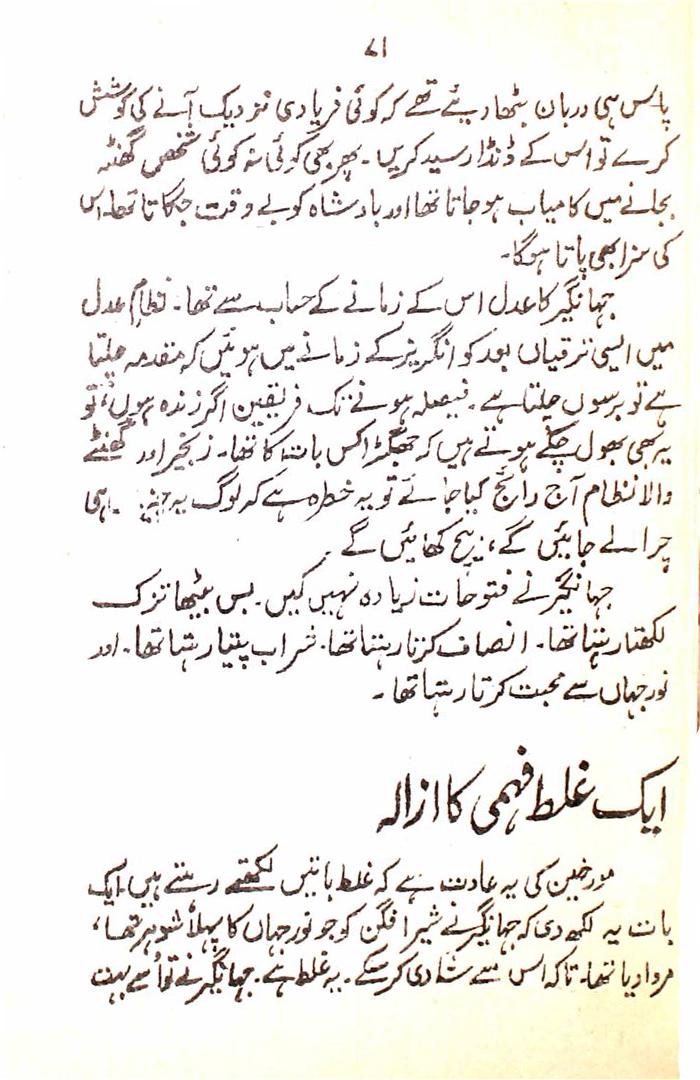 ۷۱
پاس ہی دربان بٹھا دیئے تھے کہ کوئی فریادی نزدیک آنے کی کوشش
کرے تو اس کے ڈنڈا رسید کریں۔ پھر بھی کوئی نہ کوئی شخص گھنٹہ
بجانے میں کامیاب ہو جاتا تھا اور بادشاہ کو بے وقت جگاتا تھا۔ اس
کی سزا بھی پاتا ہوگا۔
جہانگیر کا عدل اس کے زمانے کے حساب سے تھا۔ نظامِ عدل
میں ایسی ترقیاں بعد کو انگریز کے زمانے میں ہوئیں کہ مقدمہ چلتا
ہے تو برسوں چلتا ہے۔ فیصلہ ہونے تک فریقین اگر زندہ ہوں، تو
یہ بھی بھول چکے ہوتے ہیں کہ جھگڑا کس بات کا تھا۔ زنجیر اور گھنٹے
والا نظام آج رائج کیا جائے تو یہ خطرہ ہے کہ لوگ یہ چیزیں ہی
چرا لے جائیں گے، بیچ کھائیں گے۔
جہانگیر نے فتوحات زیادہ نہیں کیں۔ بس بیٹھا تزک
لکھتا رہتا تھا۔ انصاف کرتا رہتا تھا۔ شراب پیتا رہتا تھا۔ اور
نور جہاں سے محبت کرتا رہتا تھا۔
ایک غلط فہمی کا ازالہ
مورخین کی یہ عادت ہے کہ غلط باتیں لکھتے رہتے ہیں۔ ایک
بات یہ لکھ دی کہ جہانگیر نے شیر افگن کو جو نور جہاں کا پہلا شوہر تھا،
مروا دیا تھا۔ تاکہ اس سے شادی کر سکے۔ یہ غلط ہے۔ جہانگیر نے تو اُسے بہت